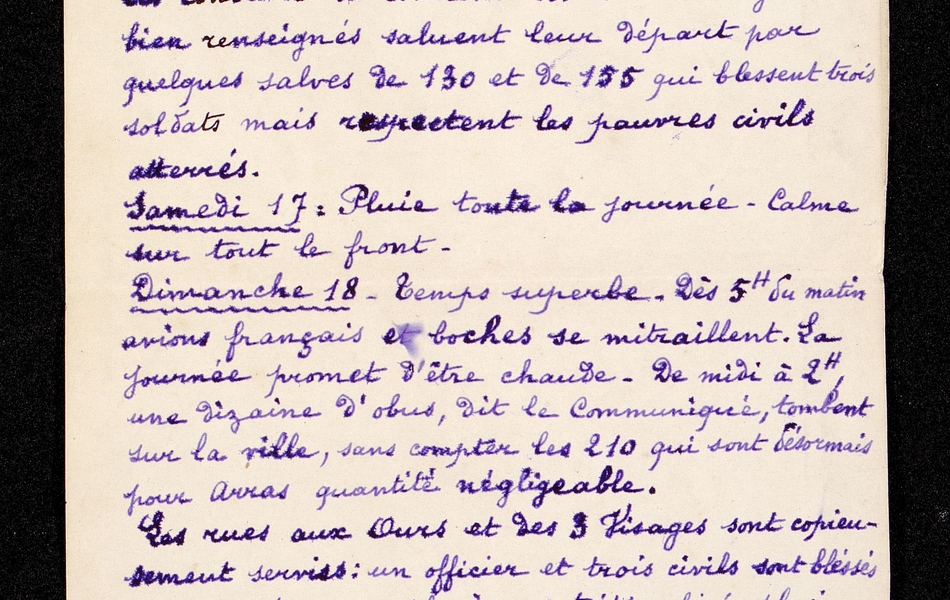 bien renseignés saluent leur départ par
quelques salves de 130 et de 155 qui blessent trois
soldats mais respectent les pauvres civils
atterrés.
Samedi 17 : Pluie toute la journée - Calme
sur tout le front -
Dimanche 18 - Temps superbe. Dès 5H du matin
avions français et boches se mitraillent. La
journée promet d'être chaude - De midi à 2H,
une dizaine d'obus, dit le Communiqué, tombent
sur la ville, sans compter les 210 qui sont désormais
pour Arras quantité négligeable.
Les rues aux Ours et des 3 Visages sont copieu-
sement servies : un officier et trois civils sont bléssés